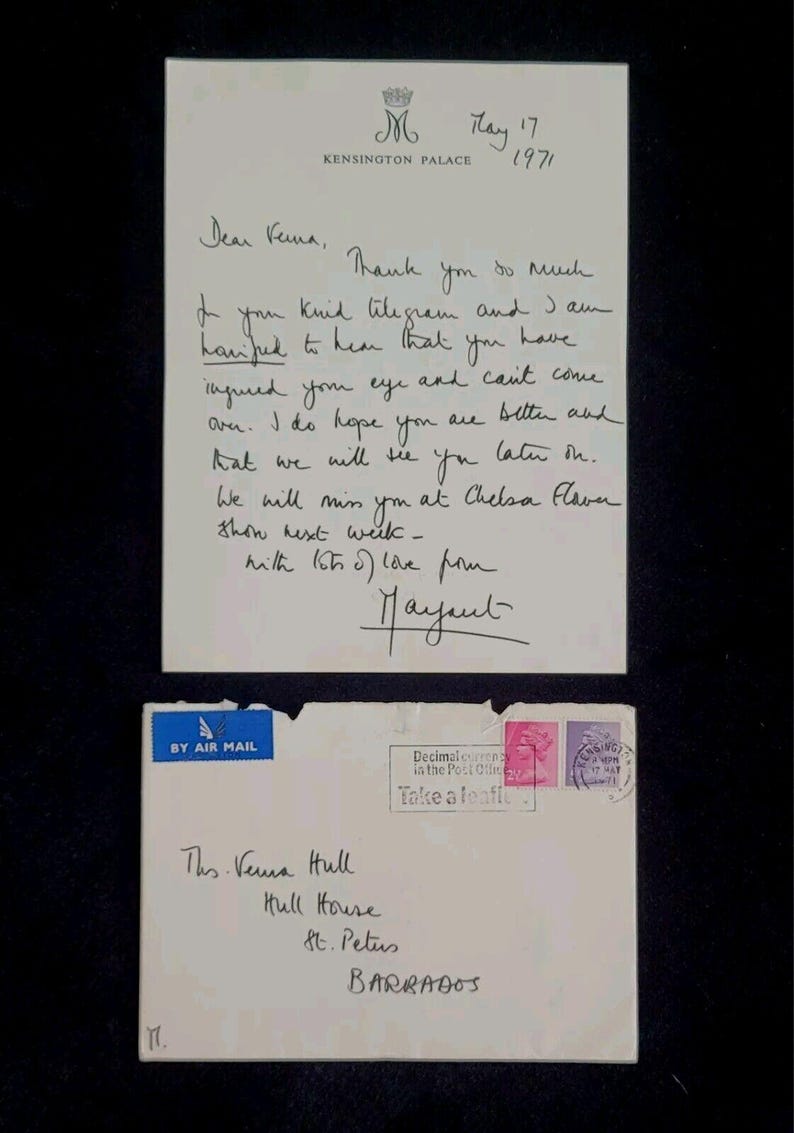 M
KENSINGTON PALACE
May 17
1971
Dear Verna,
Thank you so much
for your kind telegram and I am
horrified to hear that you have
injured your eye and can't come
over. I do hope you are better and
that we will see you later on.
We will miss you at Chelsea Flower
Show next week –
with lots of love from
Margaret
BY AIR MAIL
Decimal currency
in the Post Office
Take a leaflet
2½
KENSINGTON
PM
17 MAY
1971
Mrs. Verna Hull
Hull House
St. Peters
BARBADOS
M.